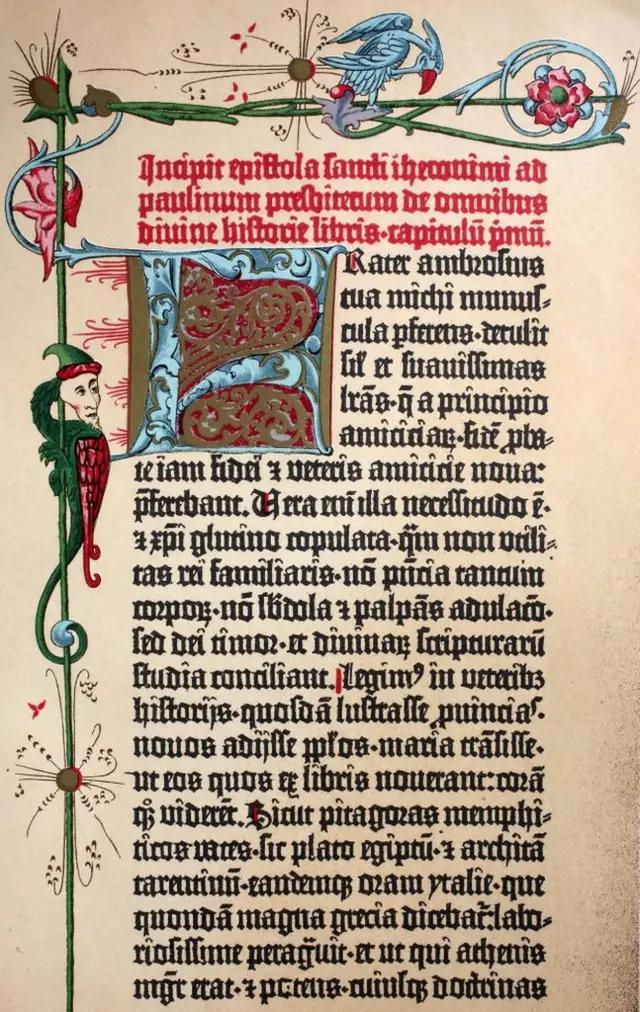 Incipit epistola sancti iheronimi ad
paulinum presbiterum de omnibus
divine historie libris·capitulū pmū.
FRater ambrosius
tua michi munus-
cula pferens·detulit
sil' et suavissimas
lrās·q̄ a principio
amiciciaꝝ·fidē pba-
te iam fidei ⁊ veteris amicicie nova:
pferebant. Vera eni illa necessitudo ē·
⁊ xpi glutino copulata·qm non utili-
tas rei familiaris·nō pn̄cia tantum
corpoꝝ·nō sbdola ⁊ palpās adulacō·
sed dei timor·et divinaꝝ scripturarū
studia conciliant. Legimꝰ in veteribꝫ
historijs·quosdā lustrasse ꝓvincias·
novos adijsse pplos·maria trāsisse·
ut eos quos ex libris noverant: corā
qꝫ viderēt. Sicut pitagoras memphi-
ticos vates·sic plato egiptū·⁊ architā
tarentinū·eandemqꝫ oram ytalie·que
quondā magna grecia dicebat̄: labo-
riosissime peragūit·et ut qui athenis
mgr̄ erat·⁊ potens·cuiusqꝫ doctrinas